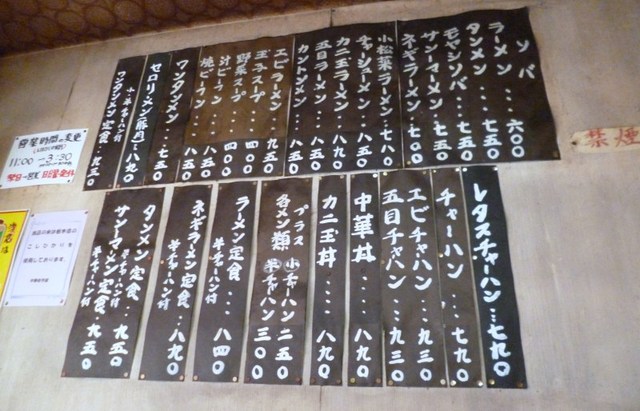 ソバ
ラーメン・・・六〇〇
タンメン・・・七五〇
モヤシソバ・・・七五〇
サンマーメン・・七五〇
ネギラーメン・・七〇〇
小松菜ラーメン・七八〇
チャシューメン・・八五〇
カニ玉ラーメン・・八五〇
五目ラーメン・・八九〇
カントンメン・・八五〇
エビラーメン・・九五〇
玉子スープ・・五〇〇
野菜スープ・・四〇〇
汁ビーフン・・八五〇
焼ビーフン・・八五〇
ワンタンメン・・・七五〇
セロリメン豚肉と八九〇
ワンタンメン定食・・九三〇
小・半チャーハン付
営業時間の変更
11:00〜3:30
日曜全休
禁煙
レタスチャーハン・・・七九〇
チャーハン・・・七九〇
エビチャーハン・・・九三〇
五目チャーハン・・・九三〇
中華丼・・・八九〇
カニ玉丼・・・八九〇
プラス
各メン類 小チャーハン二五〇
半チャーハン三〇〇
ラーメン定食・・・八四〇
半チャーハン付
ネギラーメン定食・・八九〇
半チャーハン付
タンメン定食・・・九五〇
半チャーハン付
サンマーメン定食・九五〇
半チャーハン付
こしひかりを
使用しております。